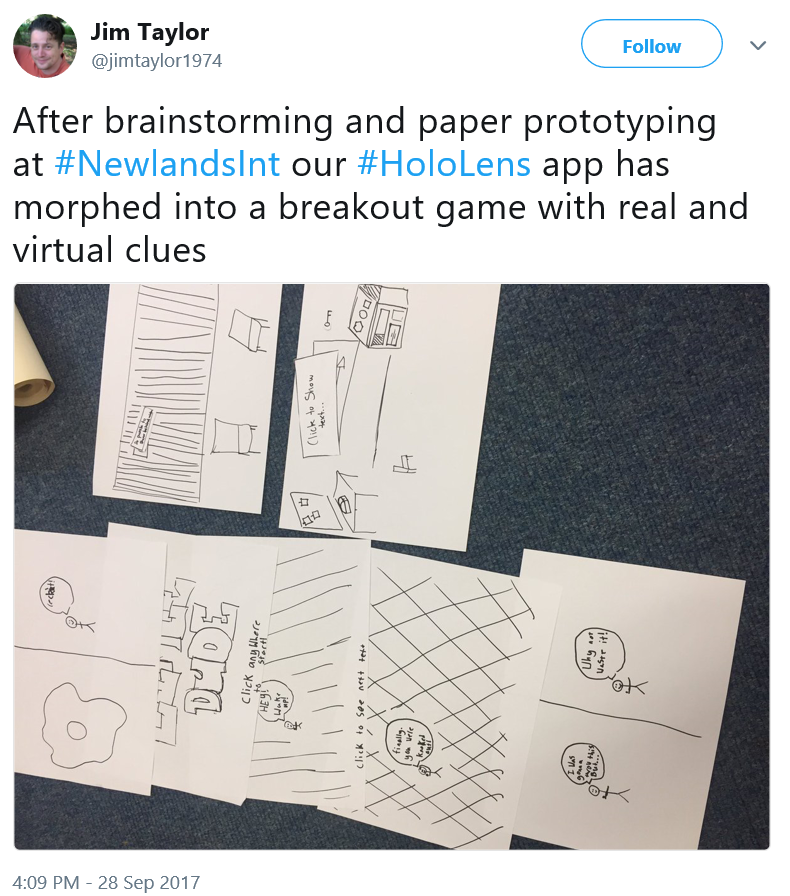 Jim Taylor
@jimtaylor1974
Follow
After brainstorming and paper prototyping
at #NewlandsInt our #HoloLens app has
morphed into a breakout game with real and
virtual clues
Click to Show
text...
LITTLE
DUDE
Click anywhere
to start!
HEY!
Wake
up!
Click to see next text
finally.
you were
out!
Why not
I was
gonna
this
But...
4:09 PM - 28 Sep 2017